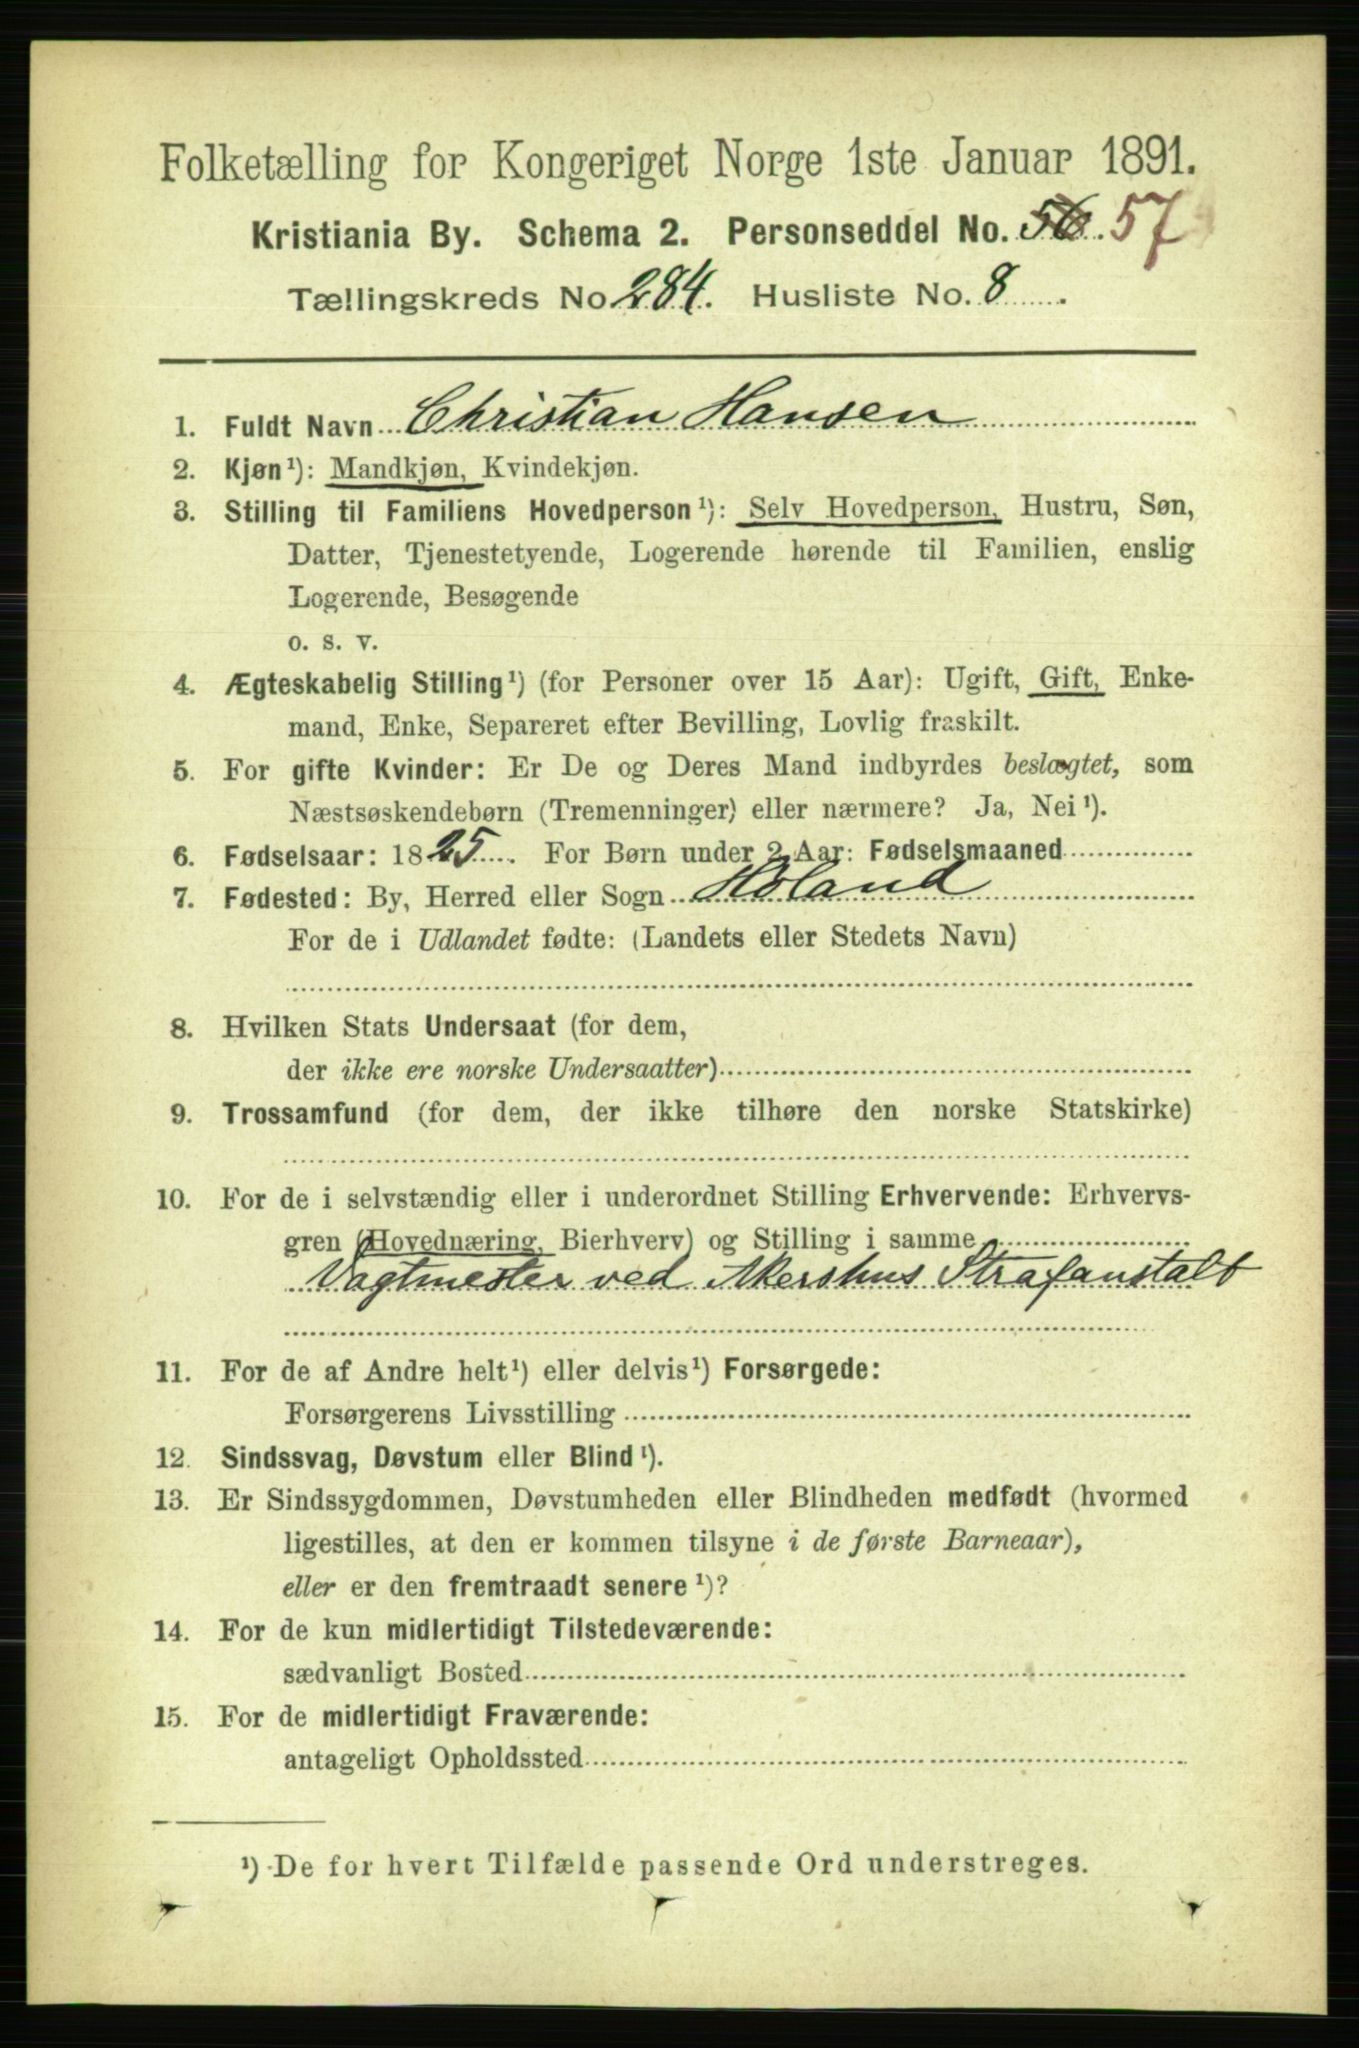 Folketælling for Kongeriget Norge 1ste Januar 1891.
Kristiania By. Schema 2. Personseddel No. 56. 57
Tællingskreds No. 284. Husliste No. 8
1. Fuldt Navn Christian Hansen
2. Kjøn¹): Mandkjøn, Kvindekjøn.
3. Stilling til Familiens Hovedperson¹): Selv Hovedperson, Hustru, Søn,
Datter, Tjenestetyende, Logerende hørende til Familien, enslig
Logerende, Besøgende
o. s. v.
4. Ægteskabelig Stilling¹) (for Personer over 15 Aar): Ugift, Gift, Enke-
mand, Enke, Separeret efter Bevilling, Lovlig fraskilt.
5. For gifte Kvinder: Er De og Deres Mand indbyrdes beslægtet, som
Næstsøskendebørn (Tremenninger) eller nærmere? Ja, Nei¹).
6. Fødselsaar: 1825. For Børn under 2 Aar: Fødselsmaaned
7. Fødested: By, Herred eller Sogn Høland
For de i Udlandet fødte: (Landets eller Stedets Navn)
8. Hvilken Stats Undersaat (for dem,
der ikke ere norske Undersaatter)
9. Trossamfund (for dem, der ikke tilhøre den norske Statskirke)
10. For de i selvstændig eller i underordnet Stilling Erhvervende: Erhvervs-
gren (Hovednæring, Bierhverv) og Stilling i samme
Vagtmester ved Akershus Strafanstalt
11. For de af Andre helt¹) eller delvis¹) Forsørgede:
Forsørgerens Livsstilling
12. Sindssvag, Døvstum eller Blind¹).
13. Er Sindssygdommen, Døvstumheden eller Blindheden medfødt (hvormed
ligestilles, at den er kommen tilsyne i de første Barneaar),
eller er den fremtraadt senere¹)?
14. For de kun midlertidigt Tilstedeværende:
sædvanligt Bosted
15. For de midlertidigt Fraværende:
antageligt Opholdssted
¹) De for hvert Tilfælde passende Ord understreges.